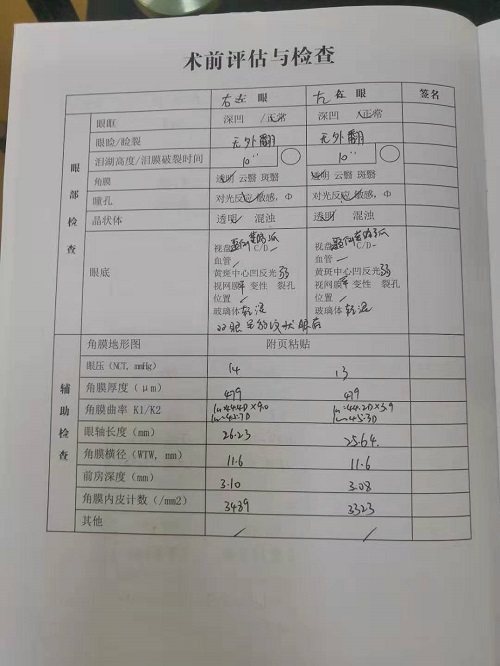 术前评估与检查
右 眼 左 眼 签名
眼部检查
眼眶 深凹 /正常 深凹 /正常
眼睑/睑裂 无外翻 无外翻
泪湖高度/泪膜破裂时间 10'' 10''
角膜 透明 云翳 斑翳 透明 云翳 斑翳
瞳孔 对光反应 敏感，Φ 对光反应 敏感，Φ
晶状体 透明 混浊 透明 混浊
眼底
视盘 C/D- 视盘 C/D-
血管 血管
黄斑中心凹反光弱 黄斑中心凹反光弱
视网膜平 变性 裂孔 视网膜平 变性 裂孔
位置 位置
玻璃体轻混 玻璃体轻混
辅助检查
角膜地形图 附页粘贴
眼压（NCT, mmHg） 14 13
角膜厚度（μm） 479 479
角膜曲率 K1/K2 44.4D×9.0 44.2D×3.9
45.3D
眼轴长度（mm） 26.23 25.64
角膜横径（WTW, mm） 11.6 11.6
前房深度（mm） 3.10 3.08
角膜内皮计数（/mm2） 3439 3323
其他 / /